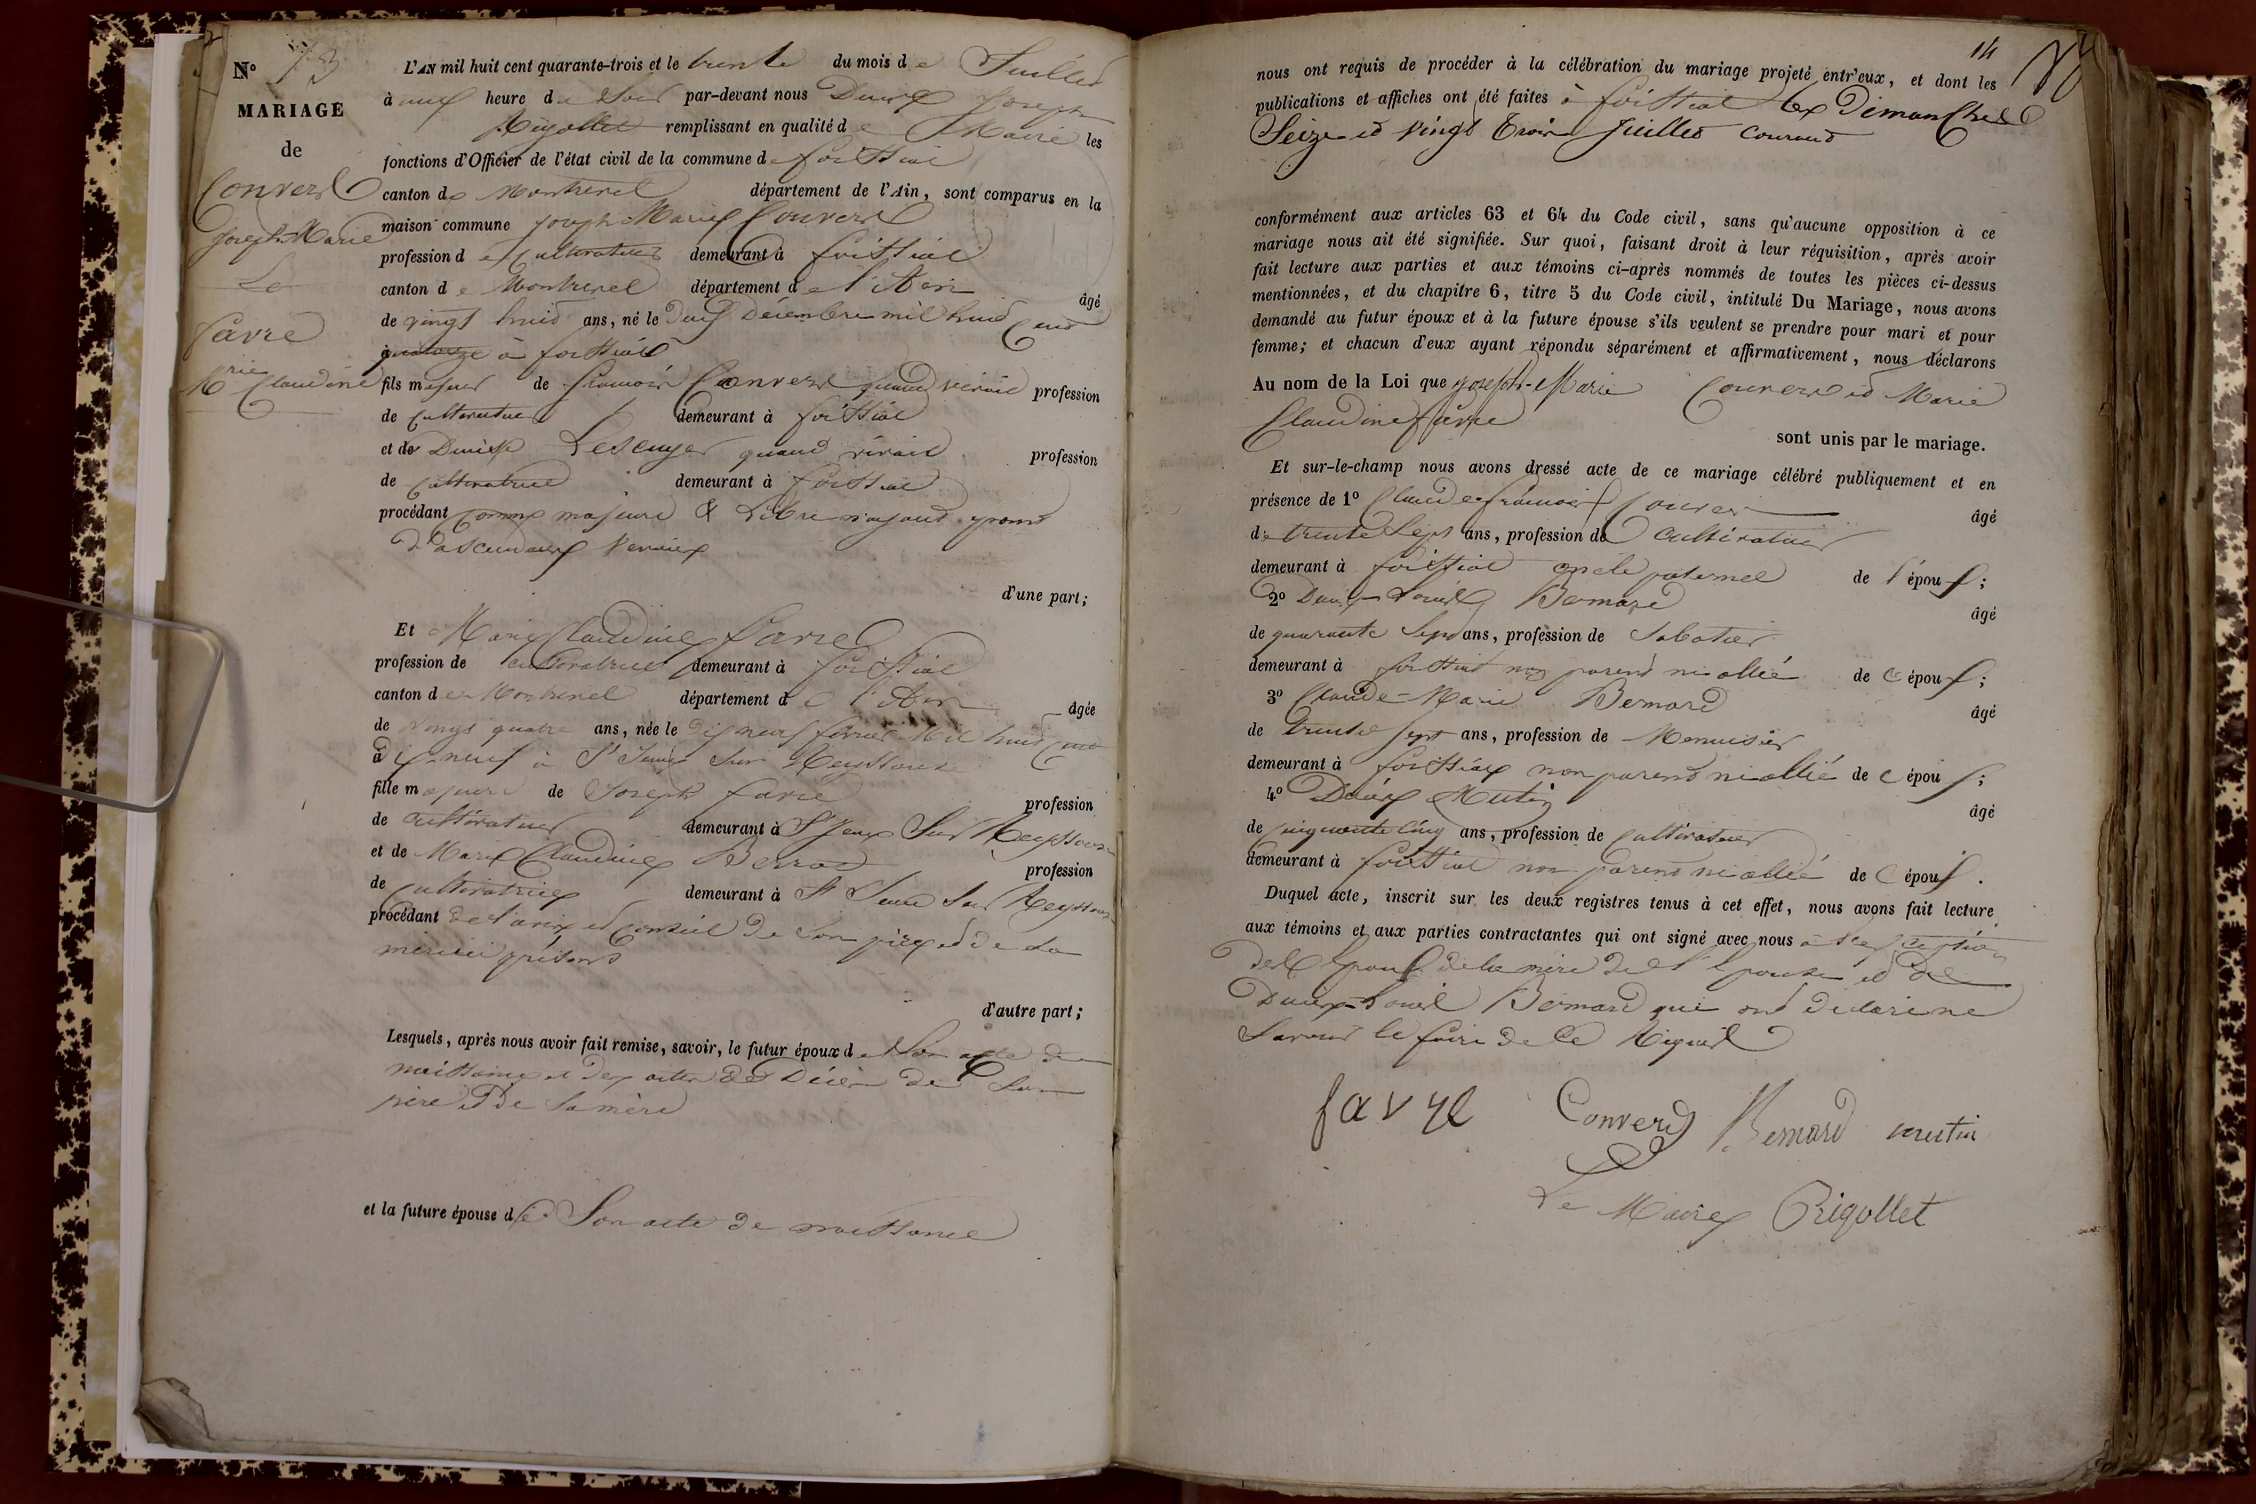 Nº 13
MARIAGE
de
Convert
Joseph Marie
Le
Favre
Mrie Claudine
L'AN mil huit cent quarante-trois et le trente du mois de Juillet
à une heure du Soir par-devant nous Denis Joseph
Rigollet remplissant en qualité de Maire les
fonctions d'Officier de l'état civil de la commune de foissiat
canton de Montrevel département de l'Ain, sont comparus en la
maison commune Joseph Marie Convert
profession de cultivateur demeurant à foissiat
canton de Montrevel département de l'Ain âgé
de vingt huit ans, né le Décembre mil huit Cent
quatorze à foissiat
fils majeur de françois Convert quand vivait profession
de cultivateur demeurant à foissiat
et de Denise Lescuyer quand vivait profession
de cultivatrice demeurant à foissiat
procédant comme majeur & Libre n'ayant point
d'ascendans
d'une part;
Et Marie Claudine favre
profession de cultivatrice demeurant à foissiat
canton de Montrevel département de l'Ain âgée
de vingt quatre ans, née le dix neuf février mil huit cent
dix-neuf à St Jean sur Reyssouze
fille majeure de Joseph favre profession
de cultivateur demeurant à St Jean Sur Reyssouze
et de Marie Claudine profession
de cultivatrice demeurant à St Jean Sur Reyssouze
procédant de l'avis et Conseil de Son père et de Sa
mère ici présents
d'autre part;
Lesquels, après nous avoir fait remise, savoir, le futur époux de Son acte de
naissance et des actes de Décès de Son
père et De Sa mère
et la future épouse de Son acte de naissance
14
nous ont requis de procéder à la célébration du mariage projeté entr'eux, et dont les
publications et affiches ont été faites à foissiat les Dimanches
Seize et vingt trois Juillet courant
conformément aux articles 63 et 64 du Code civil, sans qu'aucune opposition à ce
mariage nous ait été signifiée. Sur quoi, faisant droit à leur réquisition, après avoir
fait lecture aux parties et aux témoins ci-après nommés de toutes les pièces ci-dessus
mentionnées, et du chapitre 6, titre 5 du Code civil, intitulé Du Mariage, nous avons
demandé au futur époux et à la future épouse s'ils veulent se prendre pour mari et pour
femme; et chacun d'eux ayant répondu séparément et affirmativement, nous déclarons
Au nom de la Loi que Joseph-Marie Convert et Marie
Claudine favre
sont unis par le mariage.
Et sur-le-champ nous avons dressé acte de ce mariage célébré publiquement et en
présence de 1º Claude françois Convert âgé
de trente Sept ans, profession de Cultivateur
demeurant à foissiat oncle paternel de l'époux;
2º Denis Louis Bernard âgé
de quarante Sept ans, profession de Sabotier
demeurant à foissiat non parent ni allié de l'époux;
3º Claude-Marie Bernard âgé
de trente Sept ans, profession de Menuisier
demeurant à foissiat non parent ni allié de l'époux;
4º Denis Mutin âgé
de cinquante cinq ans, profession de cultivateur
demeurant à foissiat non parent ni allié de l'époux.
Duquel acte, inscrit sur les deux registres tenus à cet effet, nous avons fait lecture
aux témoins et aux parties contractantes qui ont signé avec nous
de l'Epoux de la mère de l'Epouse et de
Denis-Louis Bernard qui ont déclaré ne
Savoir le faire de ce Requis
favre Convert Bernard mutin
Le Maire Rigollet